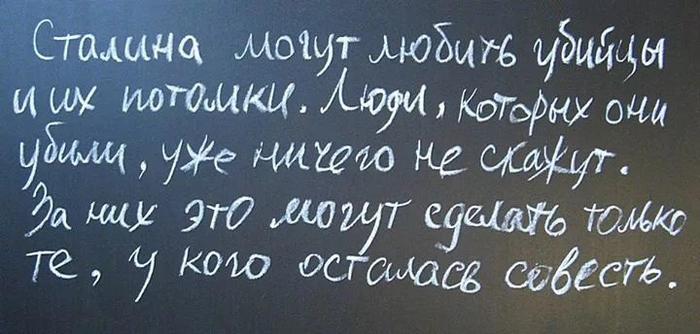 Сталина могут любить убийцы
и их потомки. Люди, которых они
убили, уже ничего не скажут.
За них это могут сделать только
те, у кого осталась совесть.